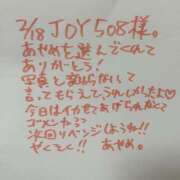 2/18 JOY508様。
あやめを選んでくれて
ありがとう!
写真と変わらないって
言ってもらえてうれしかったよ♡
今日はイカせてあげられなくて
ゴメンね??
次回リベンジしようね!!
ぜくそく!! あやめ。